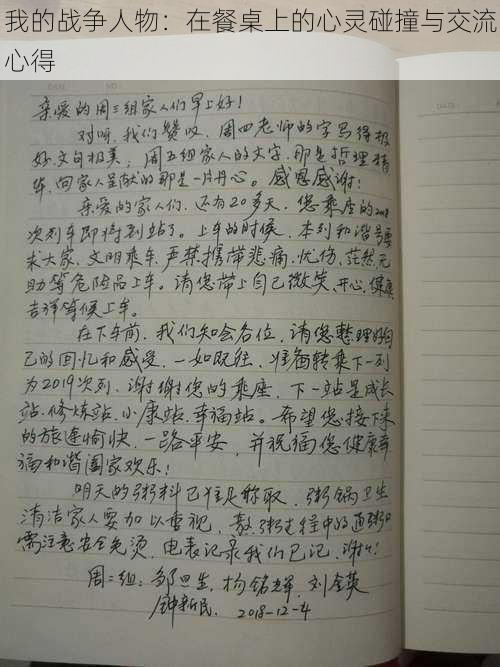 我的战争人物：在餐桌上的心灵碰撞与交流
心得
亲爱的周三组家人们早上好！
对呀，我们赞叹，周四老师的字写得极
好，文句极美，周五组家人的文字，那是哲理精
华，向家人呈献的那是一片丹心。感恩感谢！
亲爱的家人们，还有20多天，您乘座的2018
次列车即将到站了。上车的时候，本列和谐号要
求大家，文明乘车，严禁携带悲痛、忧伤、茫然、无
助等危险品上车。请您带上自己微笑、开心、健康
吉祥等候上车。
在下车前，我们知会各位，请您整理好自
己的回忆和感受，一如既往，准备转乘下一列
为2019次列，谢谢您的乘座，下一站是成长
站、修炼站、小康站、幸福站。希望您接下来
的旅途愉快，一路平安，并祝福您健康幸
福和谐阖家欢乐！
明天的粥料已往是称取，粥锅卫生
清洁家人要加以重视，熬粥过程中的通粥口
需注意安全免烫，电表记录我们已记，谢谢！
周二组：邹思生，杨铭辉，刘金英
钟新民．2018-12-4